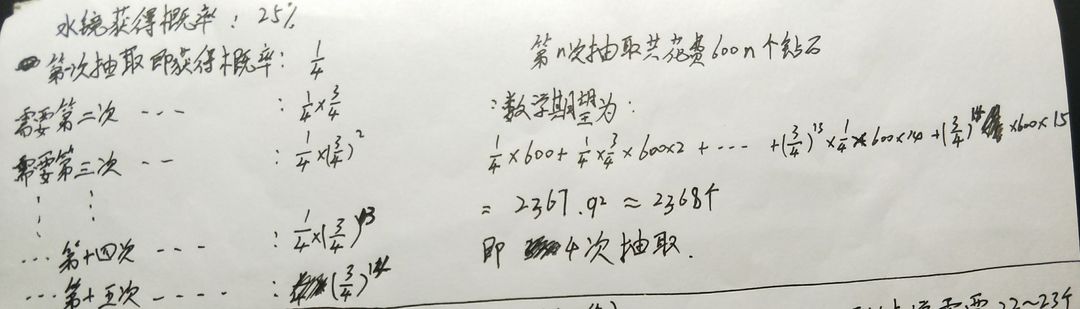 水镜获得概率：25%
第一次抽取即获得概率：1/4
需要第二次 ---：1/4×3/4
需要第三次 --：1/4×(3/4)^2
⋮ ⋮
... 第十四次 ---：1/4×(3/4)^13
... 第十五次 ----：(3/4)^14
第n次抽取共花费600n个钻石
∴数学期望为：
1/4×600+1/4×3/4×600×2+---+(3/4)^13×1/4×600×14+(3/4)^14×600×15
= 2367.92 ≈ 2368个
即 4次抽取.
需要22~23个